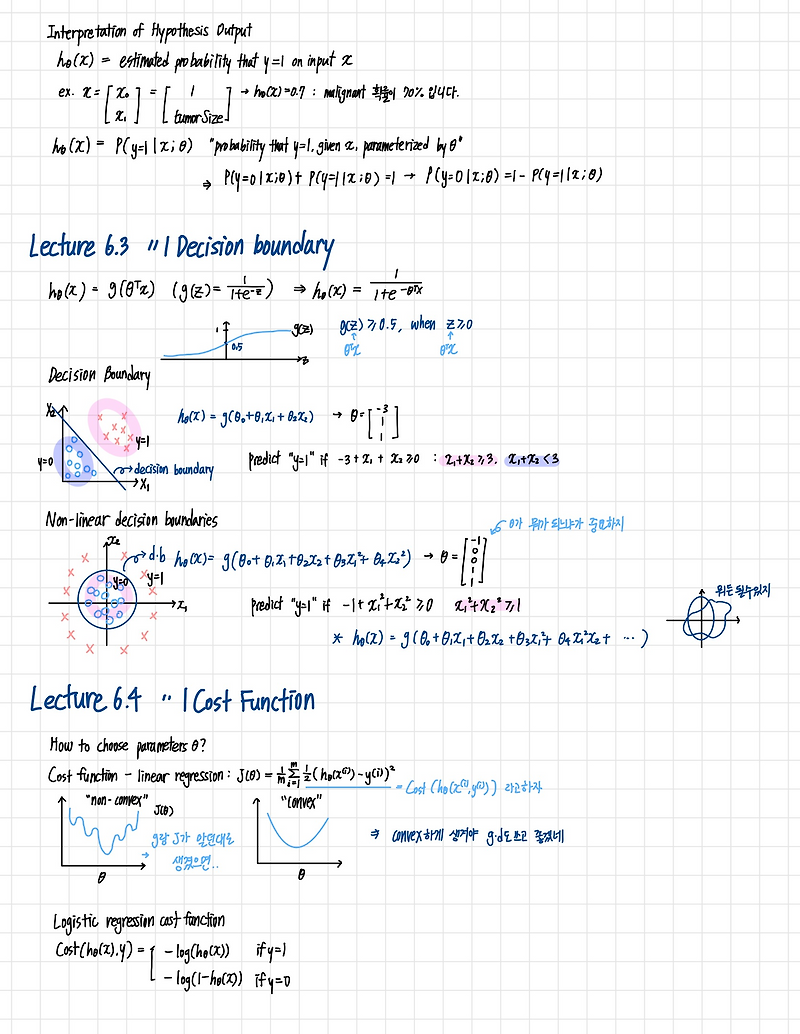 Interpretation of Hypothesis Output
hθ(x) = estimated probability that y=1 on input x
ex. x = [x₀ x₁] = [1 tumorSize] → hθ(x)=0.7 : malignant 확률이 70% 입니다.
hθ(x) = P(y=1|x;θ) "probability that y=1, given x, parameterized by θ"
⇒ P(y=0|x;θ) + P(y=1|x;θ) =1 → P(y=0|x;θ) =1- P(y=1|x;θ)
Lecture 6.3 " | Decision boundary
hθ(x) = g(θᵀx) (g(z)= 1/(1+e^-z)) ⇒ hθ(x) = 1/(1+e^-θᵀx)
1 0.5 g(z) z
g(z) ≥ 0.5, when z ≥ 0
θᵀx θᵀx
Decision Boundary
x₂ y=1 y=0 x₁ → decision boundary
hθ(x) = g(θ₀+θ₁x₁+θ₂x₂) → θ = [-3 1 1]
predict "y=1" if -3+x₁+x₂≥0 : x₁+x₂≥3, x₁+x₂<3
Non-linear decision boundaries
θ가 뭐가 되느냐가 중요하지
x₂ → d.b y=0 y=1 x₁
hθ(x)= g(θ₀+θ₁x₁+θ₂x₂+θ₃x₁²+θ₄x₂²) → θ = [-1 0 0 1 1]
predict "y=1" if -1+x₁²+x₂² ≥ 0 x₁²+x₂² ≥ 1
뭐든 될수있지
* hθ(x) = g(θ₀+θ₁x₁+θ₂x₂+θ₃x₁²+θ₄x₁²x₂+ ⋯ )
Lecture 6.4 " | Cost Function
How to choose parameters θ?
Cost function - linear regression : J(θ) = 1/m Σ_{i=1}^{m} 1/2 (hθ(x⁽ⁱ⁾)-y⁽ⁱ⁾)²
= Cost (hθ(x⁽ⁱ⁾,y⁽ⁱ⁾)) 라고하자
"non-convex" J(θ) θ
g랑 J가 알면대로
→ 생겼으면..
"convex" θ
⇒ convex하게 생겨야 g.d도 쓰고 좋겠네
Logistic regression cost function
Cost(hθ(x),y) = [ -log(hθ(x)) if y=1
-log(1-hθ(x)) if y=0